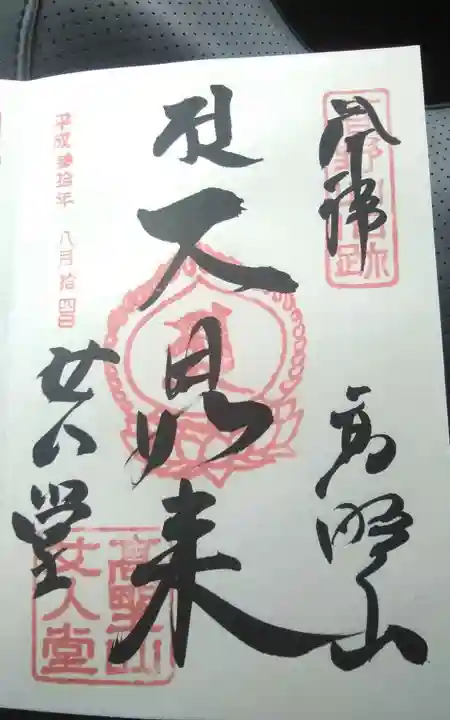 奉拝
高野山
大日如来
平成參拾年 八月拾四日
女人堂
高野山
女人堂